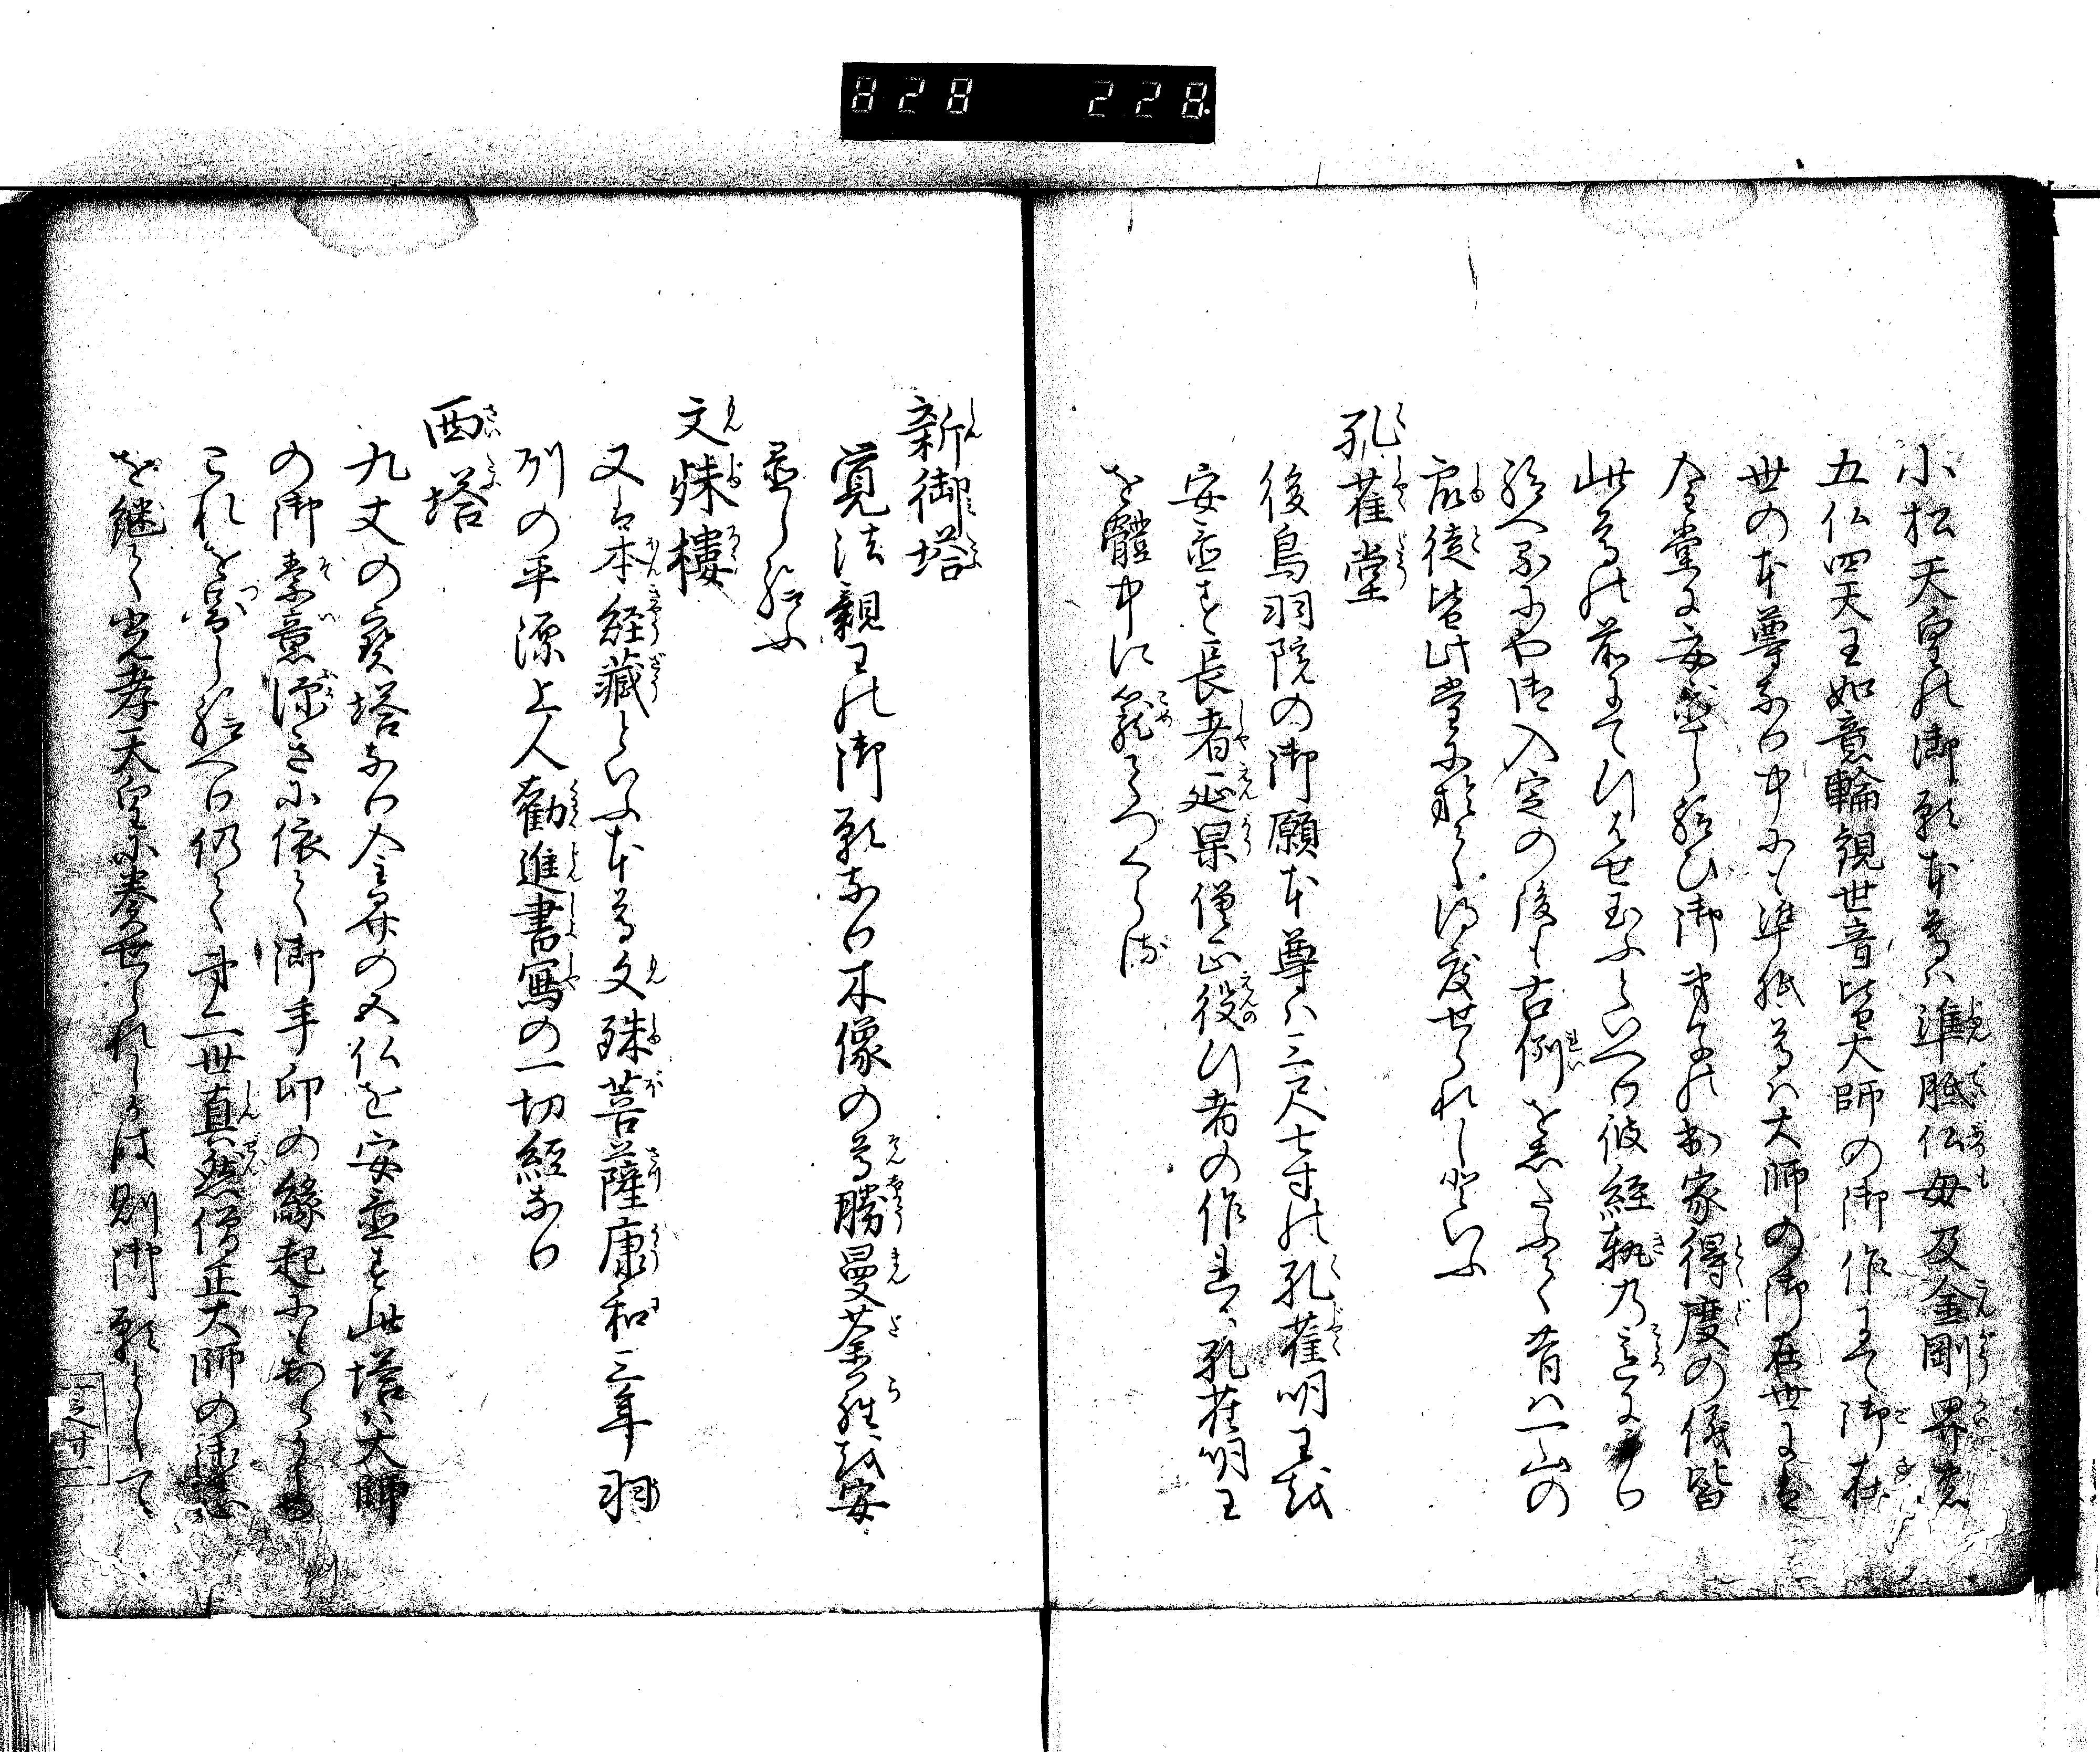 828 228
小松天皇の御願本尊ハ準胝仏母及金剛界
五仏四天王如意輪観世音皆大師の御作にて御在
世の本尊なり中にも準胝尊ハ大師の御在世には
金堂に安置し給ひ御弟子の出家得度の儀皆
此尊の前にて行はせ玉ふといへり彼経軌乃意による
給へるにや御入定の後も古例を昔ハ一山の
衆徒皆此堂に於て得度せられしといふ
孔雀堂
後鳥羽院の御願本尊ハ三尺七寸の孔雀明王を
安置す長者延杲僧正役行者の作孔雀明王
を體中に籠てつくる
新御塔
覚法親王の御願なり木像の尊勝曼荼羅を安
置し給ふ
文殊樓
又は本経蔵といふ本尊文殊菩薩康和三年羽
州の平源上人勧進書寫の一切経なり
西塔
九丈の宝塔なり金界の五仏を安置す此塔ハ大師
の御素意深きに依て御手印の縁起にも
これを図し給へり仍て第二世真然僧正大師の
を継て光孝天皇に奏せられしかは則御願として